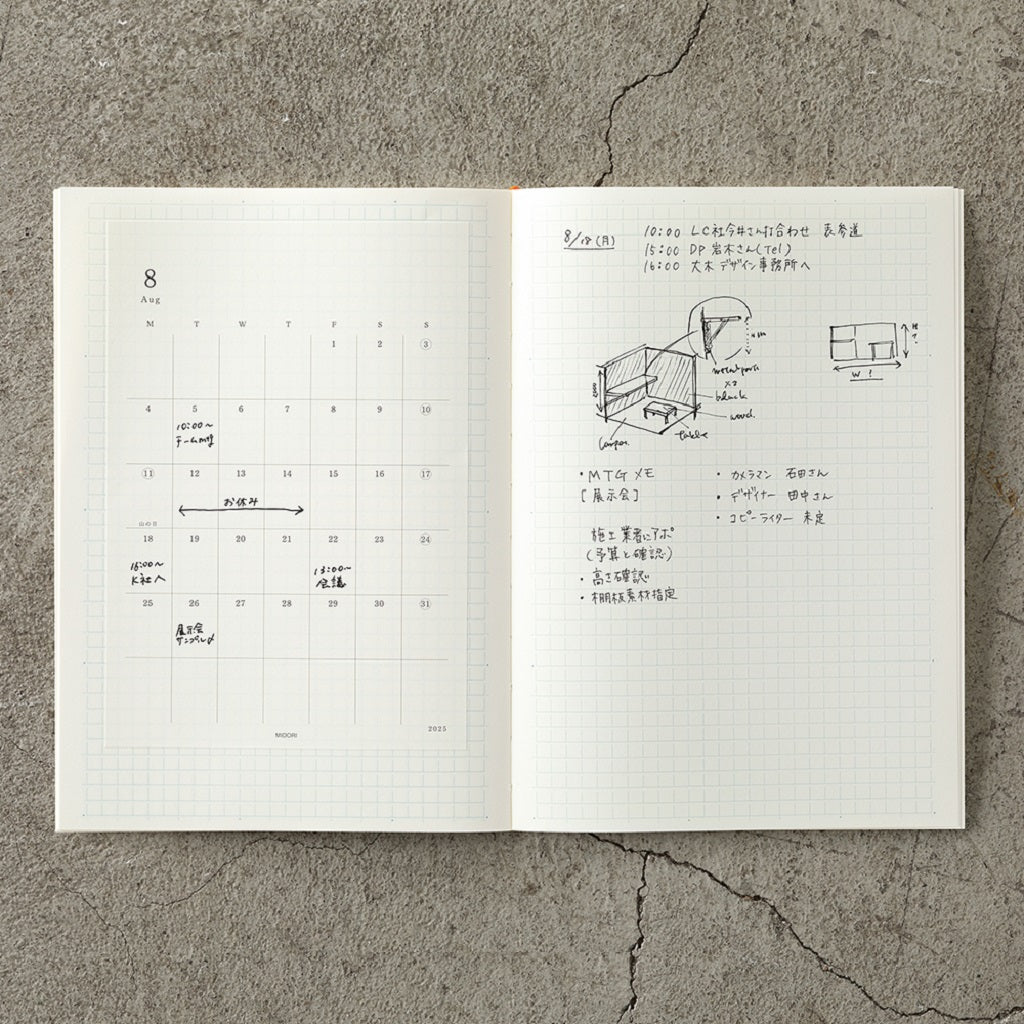 8
Aug
M T W T F S S
1 2 3
4 5 6 7 8 9 10
10:00〜
チームmtg
11 12 13 14 15 16 17
お休み
山の日
18 19 20 21 22 23 24
16:00〜
K社へ
13:00〜
会議
25 26 27 28 29 30 31
展示会
サンプル〆
MIDORI
2025
8/18(月)
10:00 LC社今井さん打合わせ 表参道
15:00 DP 岩木さん(Tel)
16:00 大木デザイン事務所へ
x2
black
wood.
table
W ?
・MTGメモ
[展示会]
施工業者にアポ
(予算と確認)
・高さ確認
・棚板素材指定
・カメラマン 石田さん
・デザイナー 田中さん
・コピーライター 未定